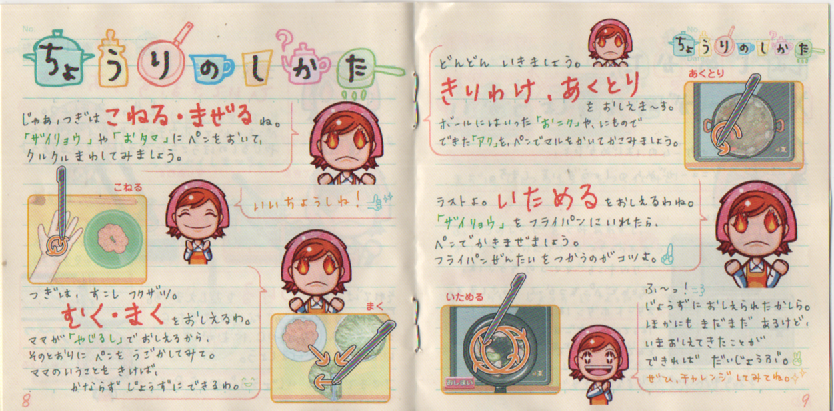 ちょうりのしかた
じゃぁ、つぎは こねる・まぜる ね。
「ザイリョウ」や「おタマ」に ペンを おいて、
クルクル まわしてみましょう。
こねる
いいちょうしね!
つぎは、すこし フクザツ。
むく・まく をおしえるわ。
ママが「やじるし」で おしえるから、
そのとおりに ペンを うごかしてみて。
ママの いうことを きけば、
かならず じょうずに できるわ。
まく
8
ちょうりのしかた
どんどん いきましょう。
きりわけ、あくとり
を おしえま〜す。
ボールに はいった「おニク」や、にもので
できた「アク」を、ペンでマルをかいてかこみましょう。
あくとり
ラストよ。いためる をおしえるわね。
「ザイリョウ」を フライパンに いれたら、
ペンで かきまぜましょう。
フライパンぜんたいを つかうのが コツよ。
いためる
ふ〜っ!
じょうずに おしえられたかしら。
ほかにも まだまだ あるけど、
いま おしえてきたことが
できれば だいじょうぶ。
ぜひ、チャレンジしてみてね。
9